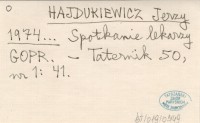 HAJDUKIEWICZ Jerzy
1974... Spotkanie lekarzy
GOPR. – Taternik 50,
nr 1: 41.